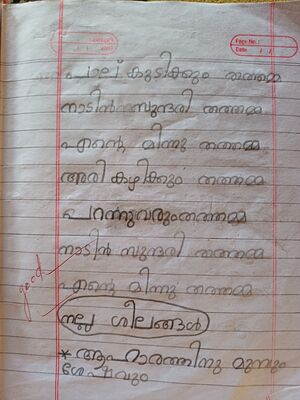 Page No.:
Date: / /
പാല് കുടിക്കും തത്തമ്മ
നാടിൻ സുന്ദരി തത്തമ്മ
എന്റെ മിന്നു തത്തമ്മ
അരി കഴിക്കും തത്തമ്മ
പറന്നുവരും തത്തമ്മ
നാടിൻ സുന്ദരി തത്തമ്മ
എന്റെ മിന്നു തത്തമ്മ
good
നല്ല ശീലങ്ങൾ
* ആഹാരത്തിനു മുമ്പും
ശേഷവും